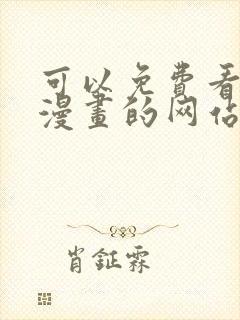 可以免費看
漫畫的网站
肖鉦霖